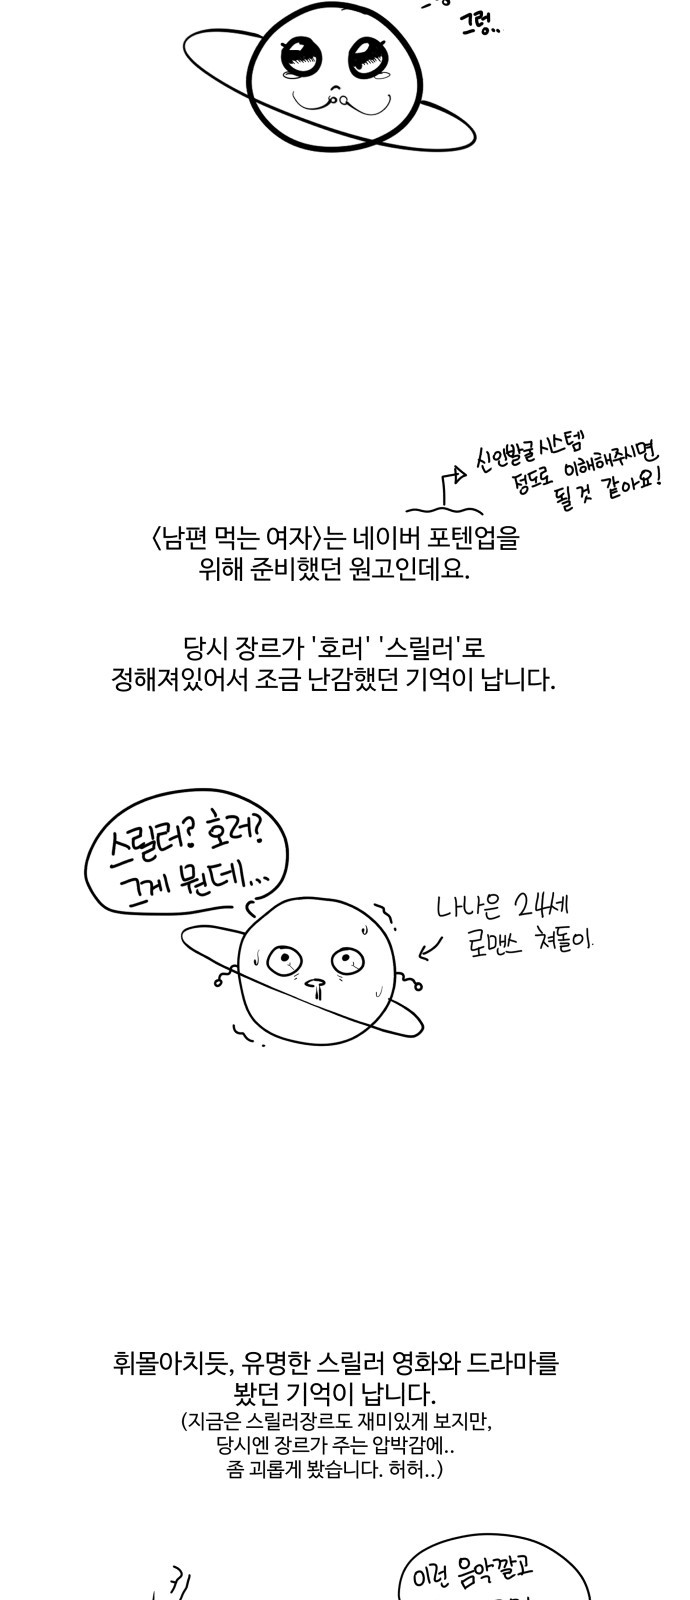 그렁..
신인발굴시스템
정도로 이해해주시면
될 것 같아요!
〈남편 먹는 여자〉는 네이버 포텐업을
위해 준비했던 원고인데요.
당시 장르가 '호러' '스릴러'로
정해져있어서 조금 난감했던 기억이 납니다.
스릴러? 호러?
그게 뭔데...
나나은 24세
로맨스 쳐돌이.
휘몰아치듯, 유명한 스릴러 영화와 드라마를
봤던 기억이 납니다.
(지금은 스릴러장르도 재미있게 보지만,
당시엔 장르가 주는 압박감에..
좀 괴롭게 봤습니다. 허허..)
이런 음악깔고